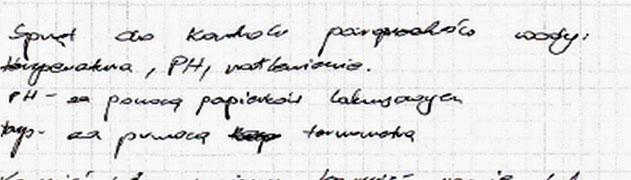 Sprzęt do kontroli parametrów wody:
temperatura, PH, natlenienie.
PH - za pomocą papierków lakmusowych
temp - za pomocą termometra